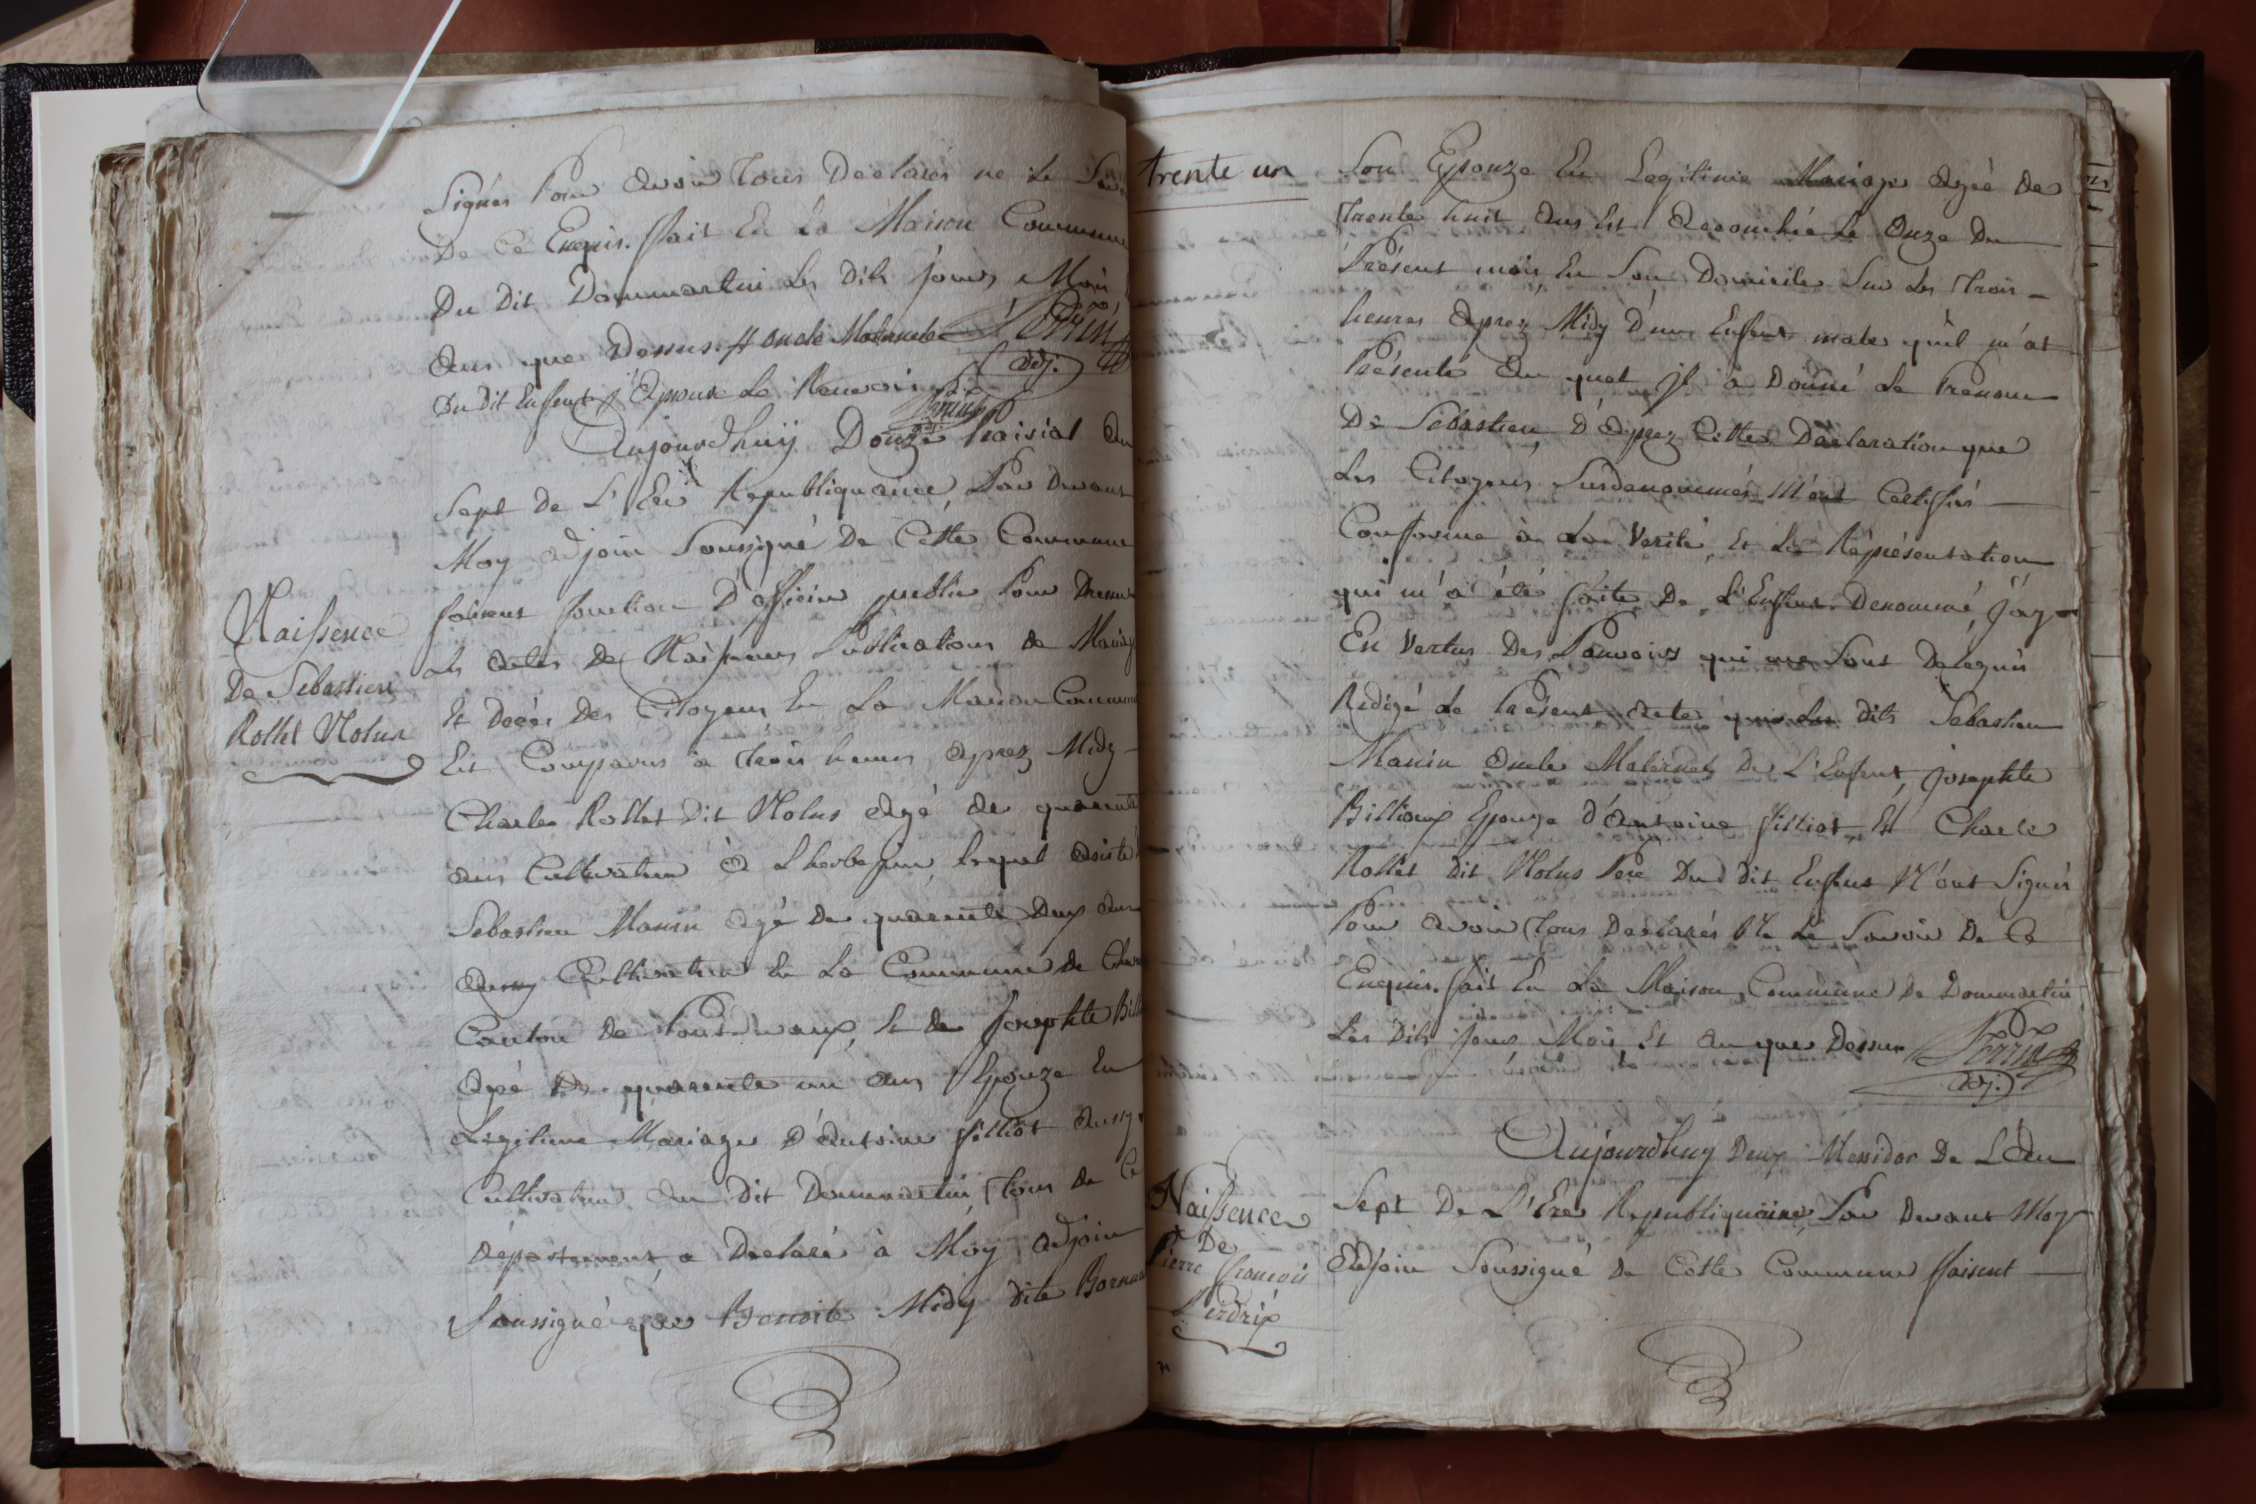 Signés Pour avoir Tous Déclarés ne le
De Ce Enquis. fait En La Maison Commune
Du Dit Dommartin les Dits jours Mois
Ans que Dessus. # oncle Maternele
adj.
Du dit Enfent # Aprouvé Le Renvoi
adj.
Aujourdhuÿ Douze Prairial an
Sept De L'Ere Republiquaine Par Devant
Moy adjoin Soussigné De Cette Commune
faisent fonction D'officier public Pour Dresser
Naissence
les actes De Naissences Publications de Mariage
De Sebastien
Et Décés Des Citoyens En La Maison Commune
Rollet Nolus
Est Comparus a trois heures aprez Midy
Charles Rollet Dit Nolus agé de quarente
ans Cultivateur à L'herbefin lequel asisté
Sebastien Manin agé De quarente Deux ans
aussy Cultivateur En La Commune de
Canton de Pont-de-vaux, Et de Josephte
agé De quarente un ans Epouze En
Legitime Mariage D'Antoine filliot aussy
Cultivateur au Dit Dommartin, Tous de Ce
département, a Declaré à Moy adjoin
Soussigné que Benoite Midy dite
trente un
Son Epouze En Legitime Mariage Agée de
Trente huit ans Est Accouchée Le Onze Du
Présent mois, En Son Domicile Sur Les Trois
heures Aprez Midy D'un Enfent male qu'il m'at
Présenté Au quel Jl a Donné Le Prenom
De Sebastien, D'aprez Cette Déclaration que
Les Citoyens Surdenommés M'ont Certifiés
Conforme à La Verité, Et La Réprésentation
qui m'a été faite De L'Enfent Denommé, J'ay
En Vertus Des Pouvoirs qui me Sont Delegués
Redigé Le Présent acte que Les dits Sebastien
Manin oncle Maternel De L'Enfent, Josephte
Billioux Epouze d'Antoine filliot Et Charle
Rollet Dit Nolus Pere Du dit Enfent N'ont Signés
Pour avoir Tous Declarés Ne Le Savoir De Ce
Enquis. fait En La Maison Commune De Dommartin
Les Dits Jour Mois Et an que Dessus
adj.
Aujourdhuy Deux Messidor De L'An
Naissence
Sept De L'Ere Republiquaine, Par Devant Moy
De
Pierre françois
Adjoin Soussigné De Cette Commune faisent
Perdrix